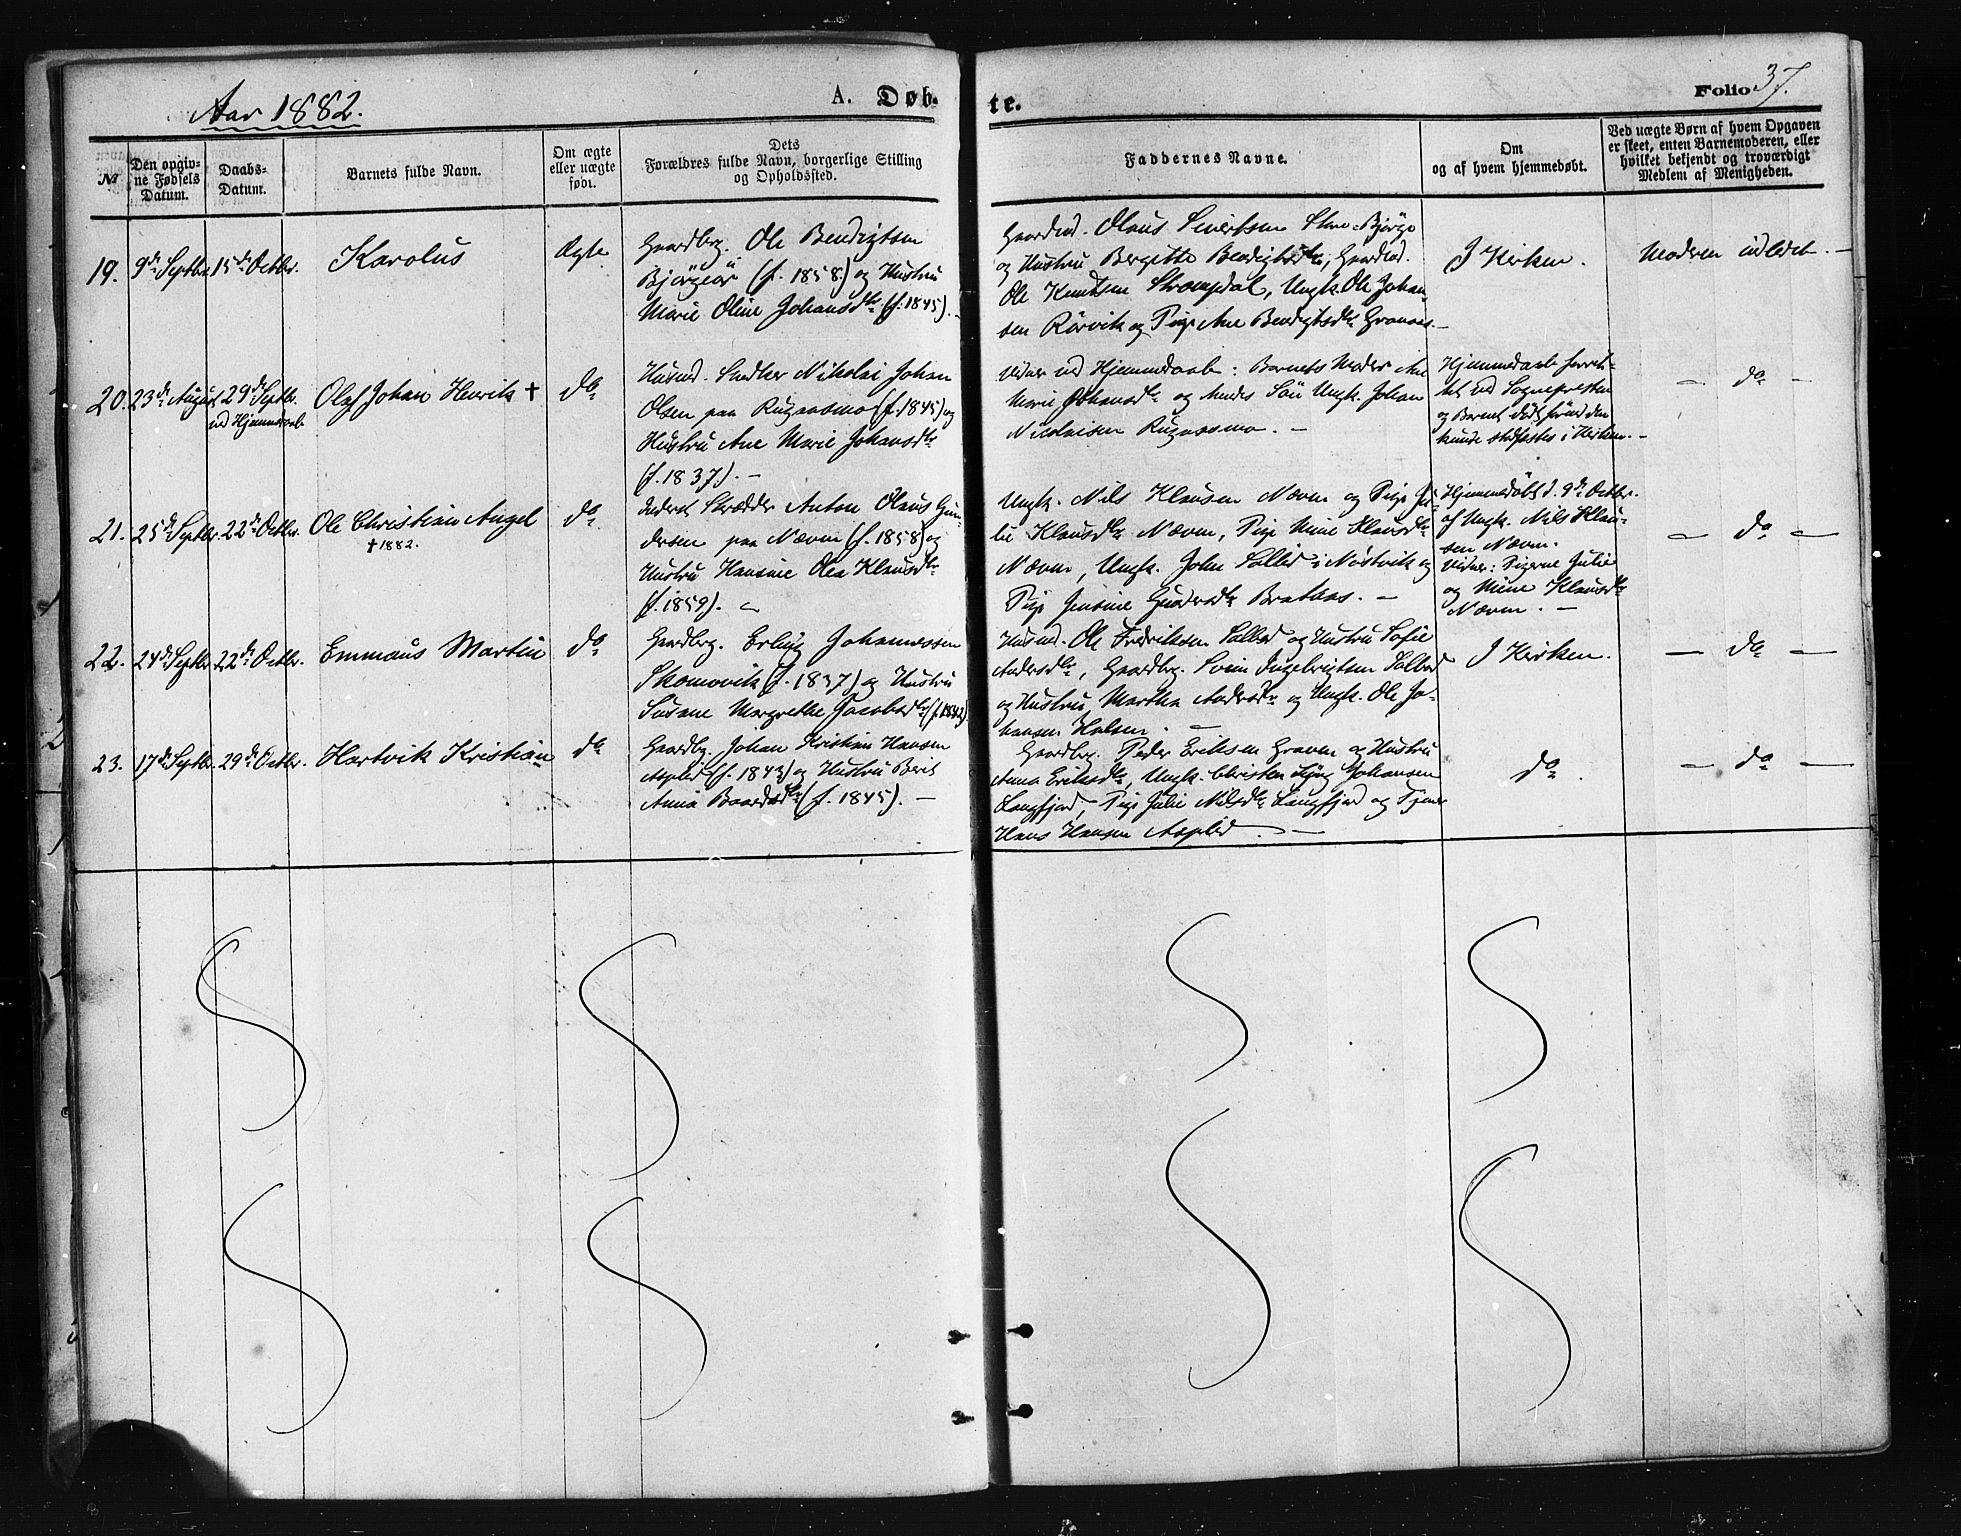 Aar 1882.
A. Døb-
te.
Folio 37.
No
Den opgiv-
ne Fødsels
Datum.
Daabs-
Datum.
Barnets fulde Navn.
Om ægte
eller uægte
født.
Dets
Forældres fulde Navn, borgerlige Stilling
og Opholdssted.
Faddernes Navne.
Om
og af hvem hjemmedøbt.
Ved uægte Børn af hvem Opgaven
er skeet, enten Barnemoderen, eller
hvilket bekjendt og troværdigt
Medlem af Menigheden.
19.
9de Septbr.
15de Octbr.
Karolus
Ægte
Gaardbrg. Ole Bendigtsen
(f. 1858) og Hustru
Marie Oline Johansdtr (f. 1845). -
Gaardmd. Olaus Sivertsen
og Hustru Bergitte Bendigtsdtr, Gaardmd.
Ole Knutsen Strompdal, Ungk. Ole Johan-
sen Rörvik og Pige Ane Bendigtsdtr
I Kirken.
Moderen indledet. -
20.
23de August
29de Septbr.
ved Hjemmedaab
Olaf Johan Henrik †
do
Husmd. Nikolai Johan
Olsen paa Rugaasmo (f. 1845) og
Hustru Ane Marie Johansdtr
(f. 1837). -
Vidner ved Hjemmedaab: Barnets Moder Ane
Marie Johansdtr og Sön Ungk. Johan
Nicolaisen Rugaasmo. -
Hjemmedaab forret-
tet ved Sognepresten
og Barnet död förend den
kunde stadfæstes i Kirken. -
- do -
21.
25de Septbr.
22de Octbr.
Ole Christian Angel
† 1882.
do
Inderst Skrædder Anton Olaus Gun-
dersen paa Nævrn (f. 1858) og
Hustru Hansine Olea Klausdtr
(f. 1859). -
Ungk. Nils Klausen Nævrn og Pige Ju-
lie Klausdtr Nævrn, Pige Mine Klausdtr
Nævrn, Ungk. John Solled i Nöstvik og
Pige Jensine
Hjemmedöbt d. 9de Octbr.
af Ungk. Nils Klau-
sen Nævrn.
Vidner: Pigerne Julie
og Mine Klausdtr
Nævrn. -
- do -
22.
24de Septbr.
22de Octbr.
Emmaus Martin
do
Gaardbrg. Johannessen
Skomovik (f. 1837) og Hustru
Susane Margrethe Jacobsdtr
Husmd. Ole Fredriksen og Hustru Sofie
Andersdtr, Gaardbrg. Svein Ingebrigtsen
og Hustru Martha Andersdtr og Ungk. Ole Jo-
hansen Holsen. -
I Kirken.
- do -
23.
17de Septbr.
29de Octbr.
Hartvik Kristian
do
Gaardbrg. Johan Kristian Hansen
Asplid (f. 1843) og Hustru Berit
Anna Baardsdtr (f. 1845). -
Gaardbrg. Peder Eriksen Graven og Hustru
Anna Eriksdtr, Ungk. Johansen
Langfjord, Pige Julie Nilsdtr Langfjord og
Hans Hansen Asplid. -
do.
- do -